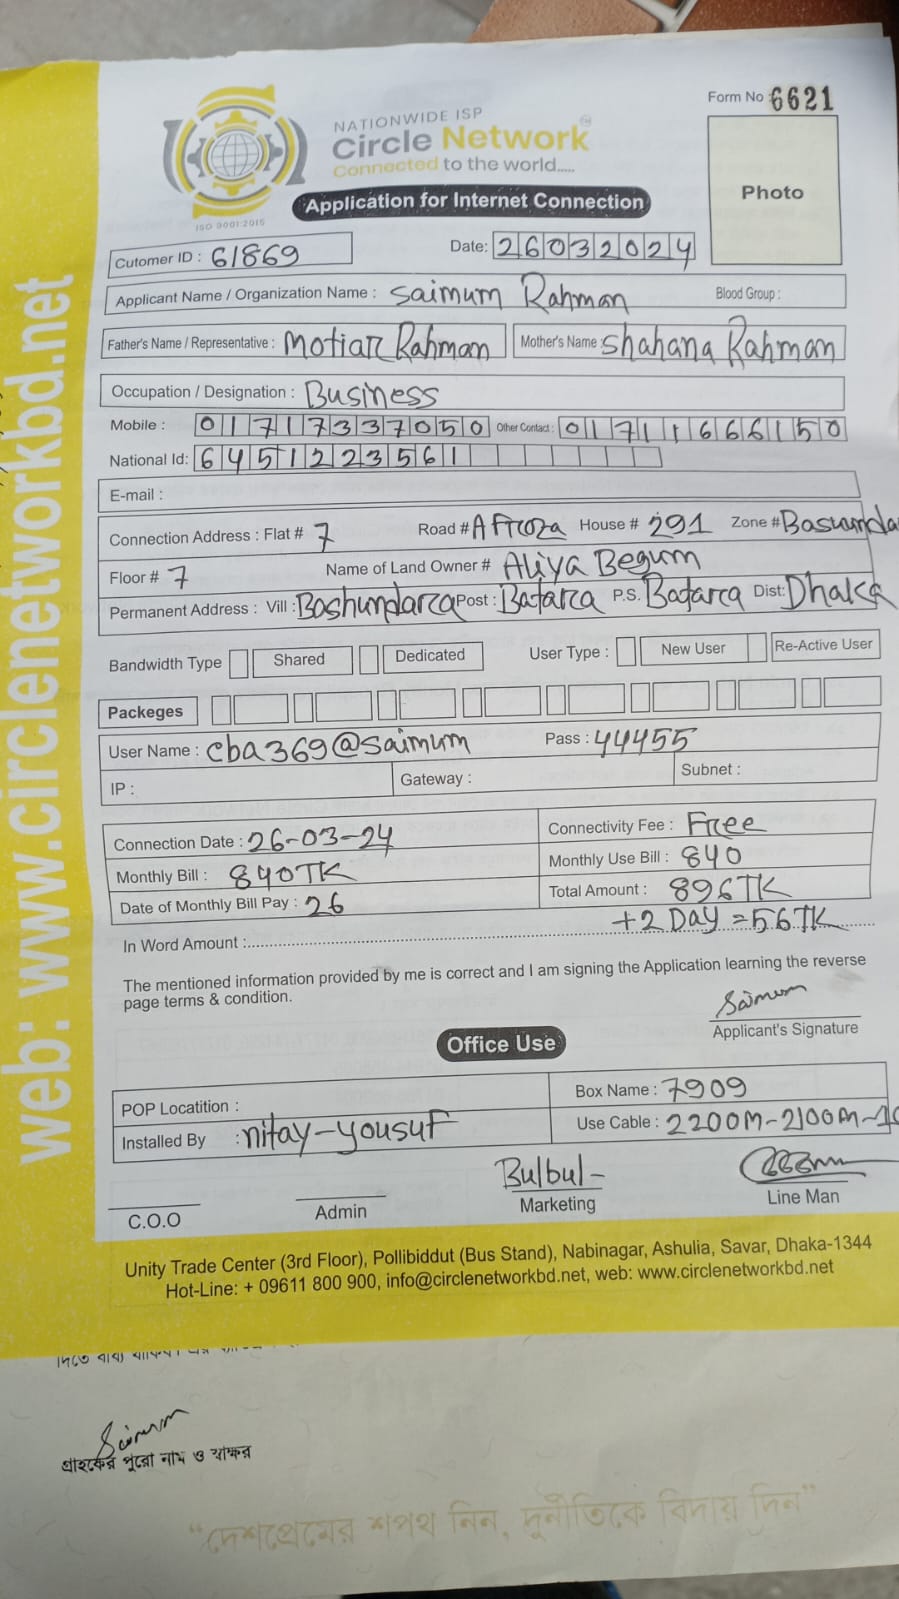 Form No 6621
NATIONWIDE ISP
Circle Network
Connected to the world.....
ISO 9001:2015
Photo
Application for Internet Connection
Cutomer ID : 61869 Date: 26032024
Applicant Name / Organization Name : Saimum Rahman Blood Group :
Father's Name / Representative : Motiar Rahman Mother's Name : Shahana Rahman
Occupation / Designation : Business
Mobile : 01717337050 Other Contact : 01711666150
National Id: 6451223561
E-mail :
Connection Address : Flat # 7 Road # Afroza House # 291 Zone # Bashunda
Floor # 7 Name of Land Owner # Aliya Begum
Permanent Address : Vill : Bashundara Post : Batara P.S. Batara Dist: Dhaka
Bandwidth Type Shared Dedicated User Type : New User Re-Active User
Packeges
User Name : cba369@saimum Pass : 44455
IP : Gateway : Subnet :
Connection Date : 26-03-24 Connectivity Fee : Free
Monthly Bill : 840TK Monthly Use Bill : 840
Date of Monthly Bill Pay : 26 Total Amount : 896TK
+2 Day = 56TK
In Word Amount :
The mentioned information provided by me is correct and I am signing the Application learning the reverse
page terms & condition.
Saimum
Applicant's Signature
Office Use
POP Locatition : Box Name : 7909
Installed By : nitay-yousuf Use Cable : 2200M-2100M-10
Bulbul
C.O.O Admin Marketing Line Man
Unity Trade Center (3rd Floor), Pollibiddut (Bus Stand), Nabinagar, Ashulia, Savar, Dhaka-1344
Hot-Line: + 09611 800 900, info@circlenetworkbd.net, web: www.circlenetworkbd.net
web: www.circlenetworkbd.net
Saimum
গ্রাহকের পুরো নাম ও স্বাক্ষর
“দেশপ্রেমের শপথ নিন, দুর্নীতিকে বিদায় দিন”